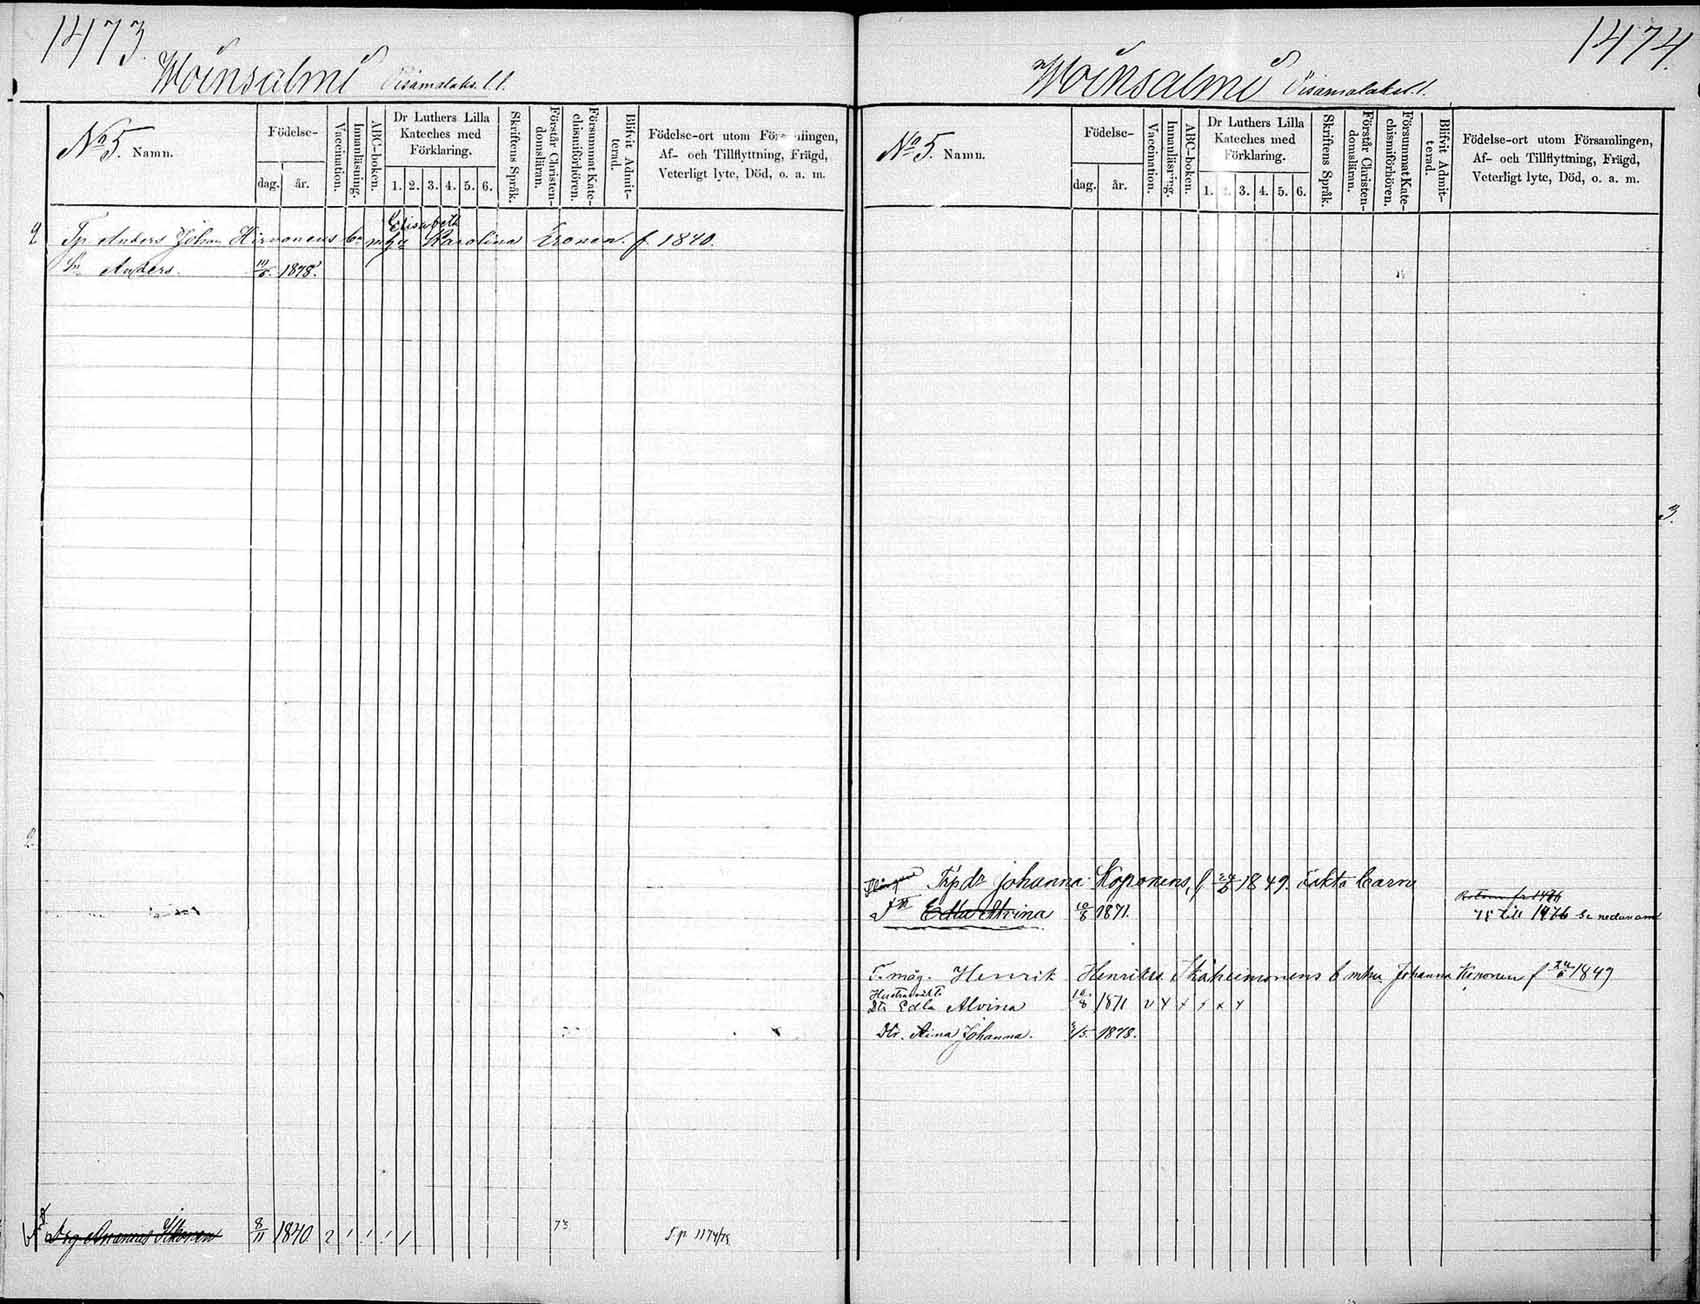 1473.
Woinsalmi
No 5. Namn.
Födelse-
dag. år.
Vaccination.
Innanläsning.
ABC-boken.
Dr Luthers Lilla
Kateches med
Förklaring.
1. 2. 3. 4. 5. 6.
Skriftens Språk.
Förstår Christen-
domsläran.
Försummat Kate-
chismiförhören.
Blifvit Admit-
terad.
Födelse-ort utom Församlingen,
Af- och Tillflyttning, Frägd,
Veterligt lyte, Död, o. a. m.
Elisabeth
Tp Anders Johan Hirvonens Karolina f. 1840.
Sn Anders. 1878.
8/11 1840 2 1 1 1 1 73
1474.
Woinsalmi
No 5. Namn.
Födelse-
dag. år.
Vaccination.
Innanläsning.
ABC-boken.
Dr Luthers Lilla
Kateches med
Förklaring.
1. 2. 3. 4. 5. 6.
Skriftens Språk.
Förstår Christen-
domsläran.
Försummat Kate-
chismiförhören.
Blifvit Admit-
terad.
Födelse-ort utom Församlingen,
Af- och Tillflyttning, Frägd,
Veterligt lyte, Död, o. a. m.
3.
Johanna Koponens, f 1849. oäkta barn
Edla 10/8 1871. till 1476 se nedanom
T. måg. Henrik Henriks b. Johanna Koponen f 1849
Dtr Edla Alvina 10/8 1871
Dtr. Aina Johanna. 1878.